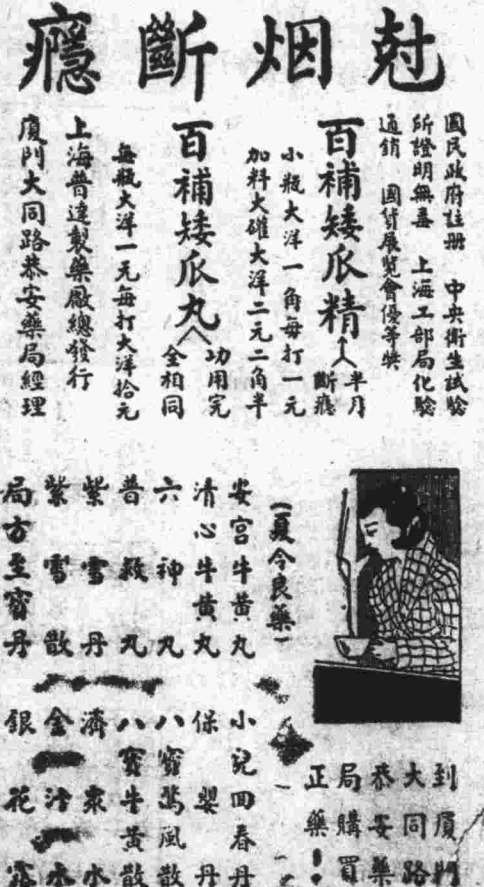 尅烟斷癮
國民政府註冊 中央衛生試驗
所證明無毒 上海工部局化驗
通銷 國貨展覽會優等獎
百補矮瓜精
半月
斷癮
小瓶大洋一角每打一元
加料大礶大洋二元二角半
百補矮瓜丸
功用完
全相同
每瓶大洋一元每打大洋拾元
上海普達製藥廠總發行
廈門大同路恭安藥局經理
夏令良藥
安宮牛黃丸
清心牛黃丸
六神丸
普救丸
紫雪丹
紫雪散
局方至寶丹
小兒回春丹
保嬰丹
八寶驚風散
八寶牛黃散
濟衆水
金汁水
銀花露
到廈門
大同路
恭安藥
局購買
正藥！